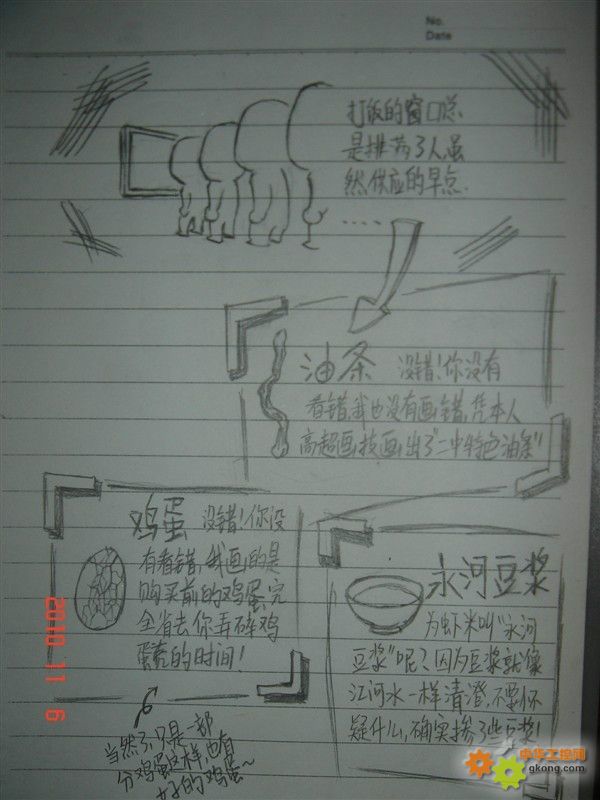 No.
Date
打饭的窗口总
是挤满了人虽
然供应的早点
......
油条 没错!你没有
看错,我也没有画错,凭本人
高超画技画出了"二中特色油条"
鸡蛋 没错!你没
有看错,我画的是
购买前的鸡蛋完
全省去你弄碎鸡
蛋壳的时间!
当然了,只是一部
分鸡蛋这样,也有
好的鸡蛋~
永河豆浆
为虾米叫"永河
豆浆"呢?因为豆浆就像
江河水一样清澄,不要怀
疑什么,确实掺了些豆浆!
2010 11 6
中华工控网
gkong.com